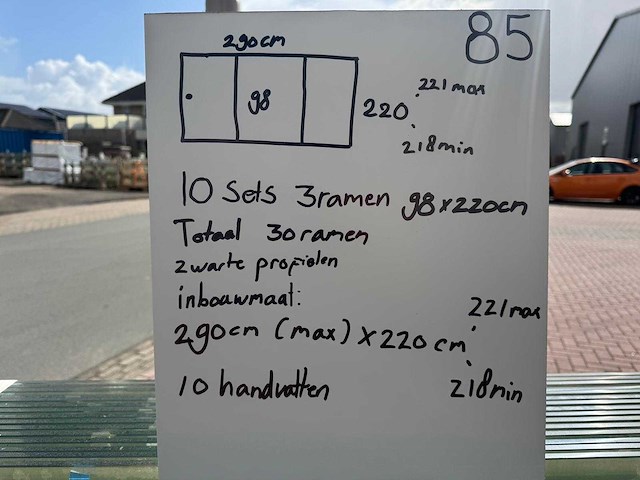 85
290cm
98
220
221 max
218 min
10 Sets 3ramen 98x220cm
Totaal 30 ramen
zwarte profielen
inbouwmaat:
221 max
290cm (max) x 220 cm
218 min
10 handvatten